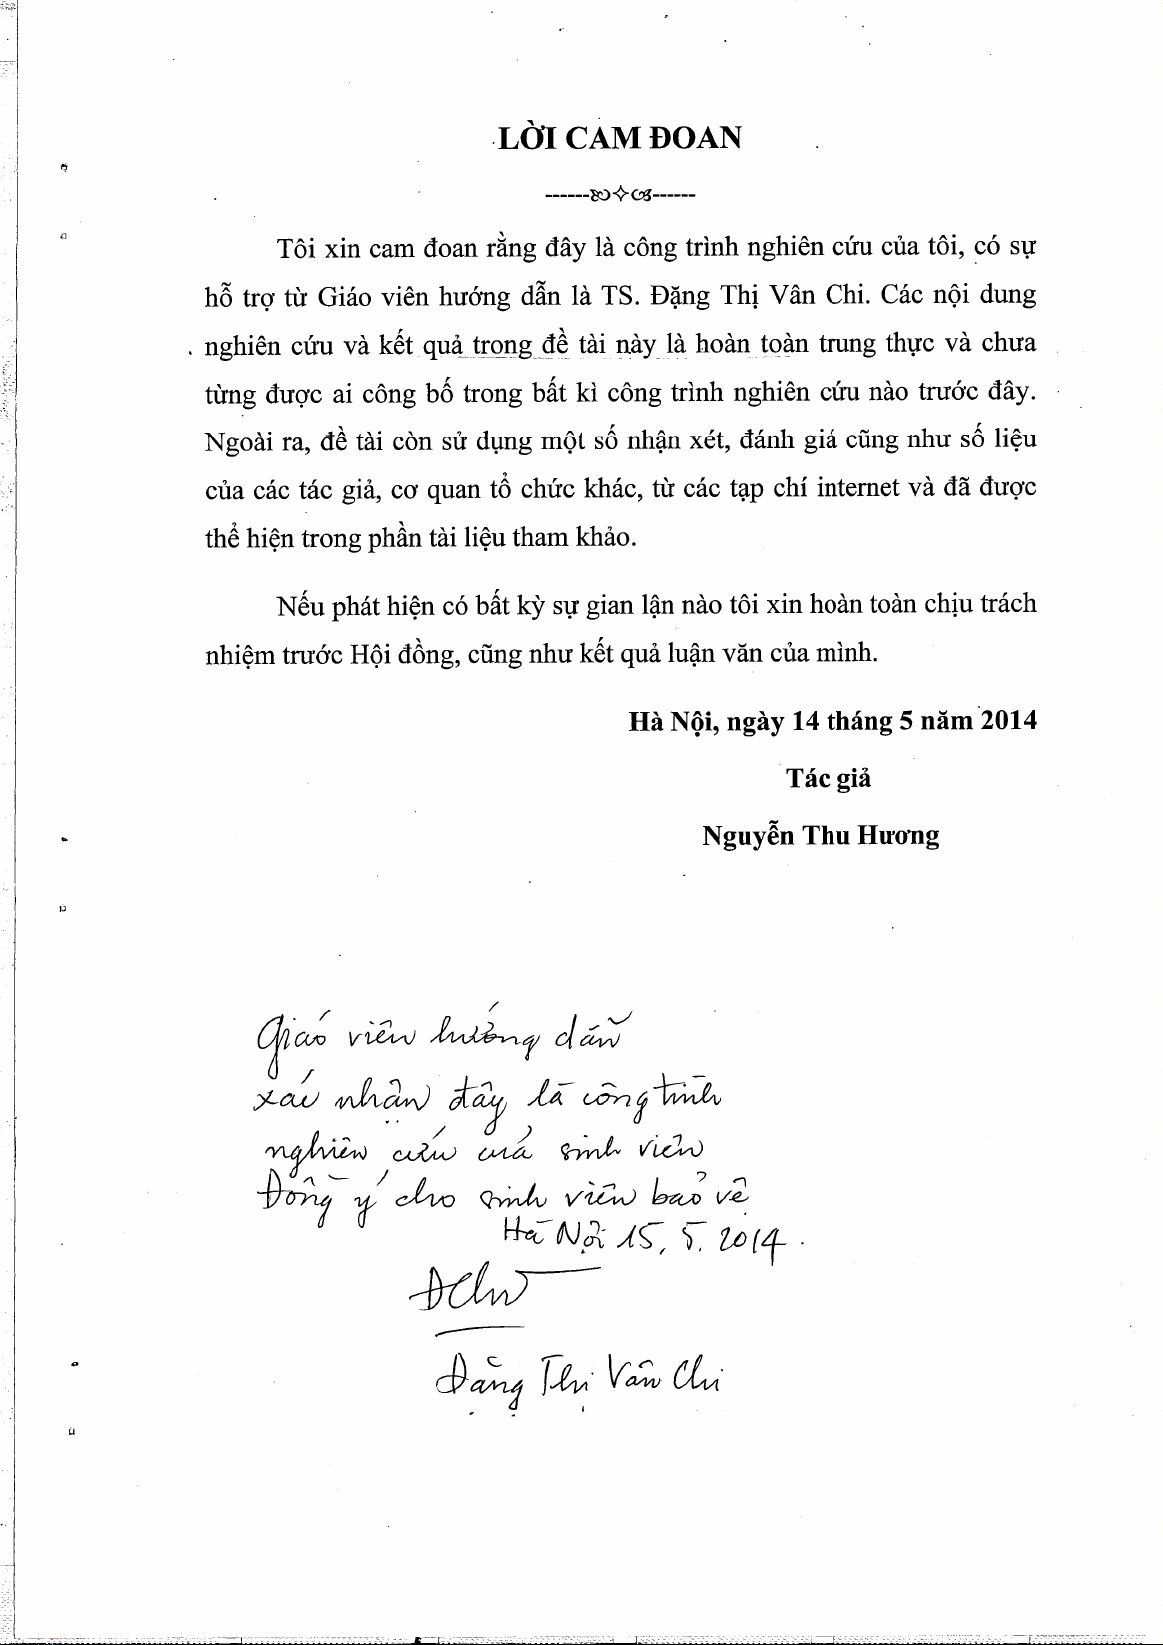 LỜI CAM ĐOAN
Tôi xin cam đoan rằng đây là công trình nghiên cứu của tôi, có sự
hỗ trợ từ Giáo viên hướng dẫn là TS. Đặng Thị Vân Chi. Các nội dung
nghiên cứu và kết quả trong đề tài này là hoàn toàn trung thực và chưa
từng được ai công bố trong bất kì công trình nghiên cứu nào trước đây.
Ngoài ra, đề tài còn sử dụng một số nhận xét, đánh giá cũng như số liệu
của các tác giả, cơ quan tổ chức khác, từ các tạp chí internet và đã được
thể hiện trong phần tài liệu tham khảo.
Nếu phát hiện có bất kỳ sự gian lận nào tôi xin hoàn toàn chịu trách
nhiệm trước Hội đồng, cũng như kết quả luận văn của mình.
Hà Nội, ngày 14 tháng 5 năm 2014
Tác giả
Nguyễn Thu Hương
Giáo viên hướng dẫn
xác nhận đây là công trình
nghiên cứu của sinh viên
Đồng ý cho sinh viên bảo vệ
Hà Nội 15. 5. 2014.
Đặng Thị Vân Chi